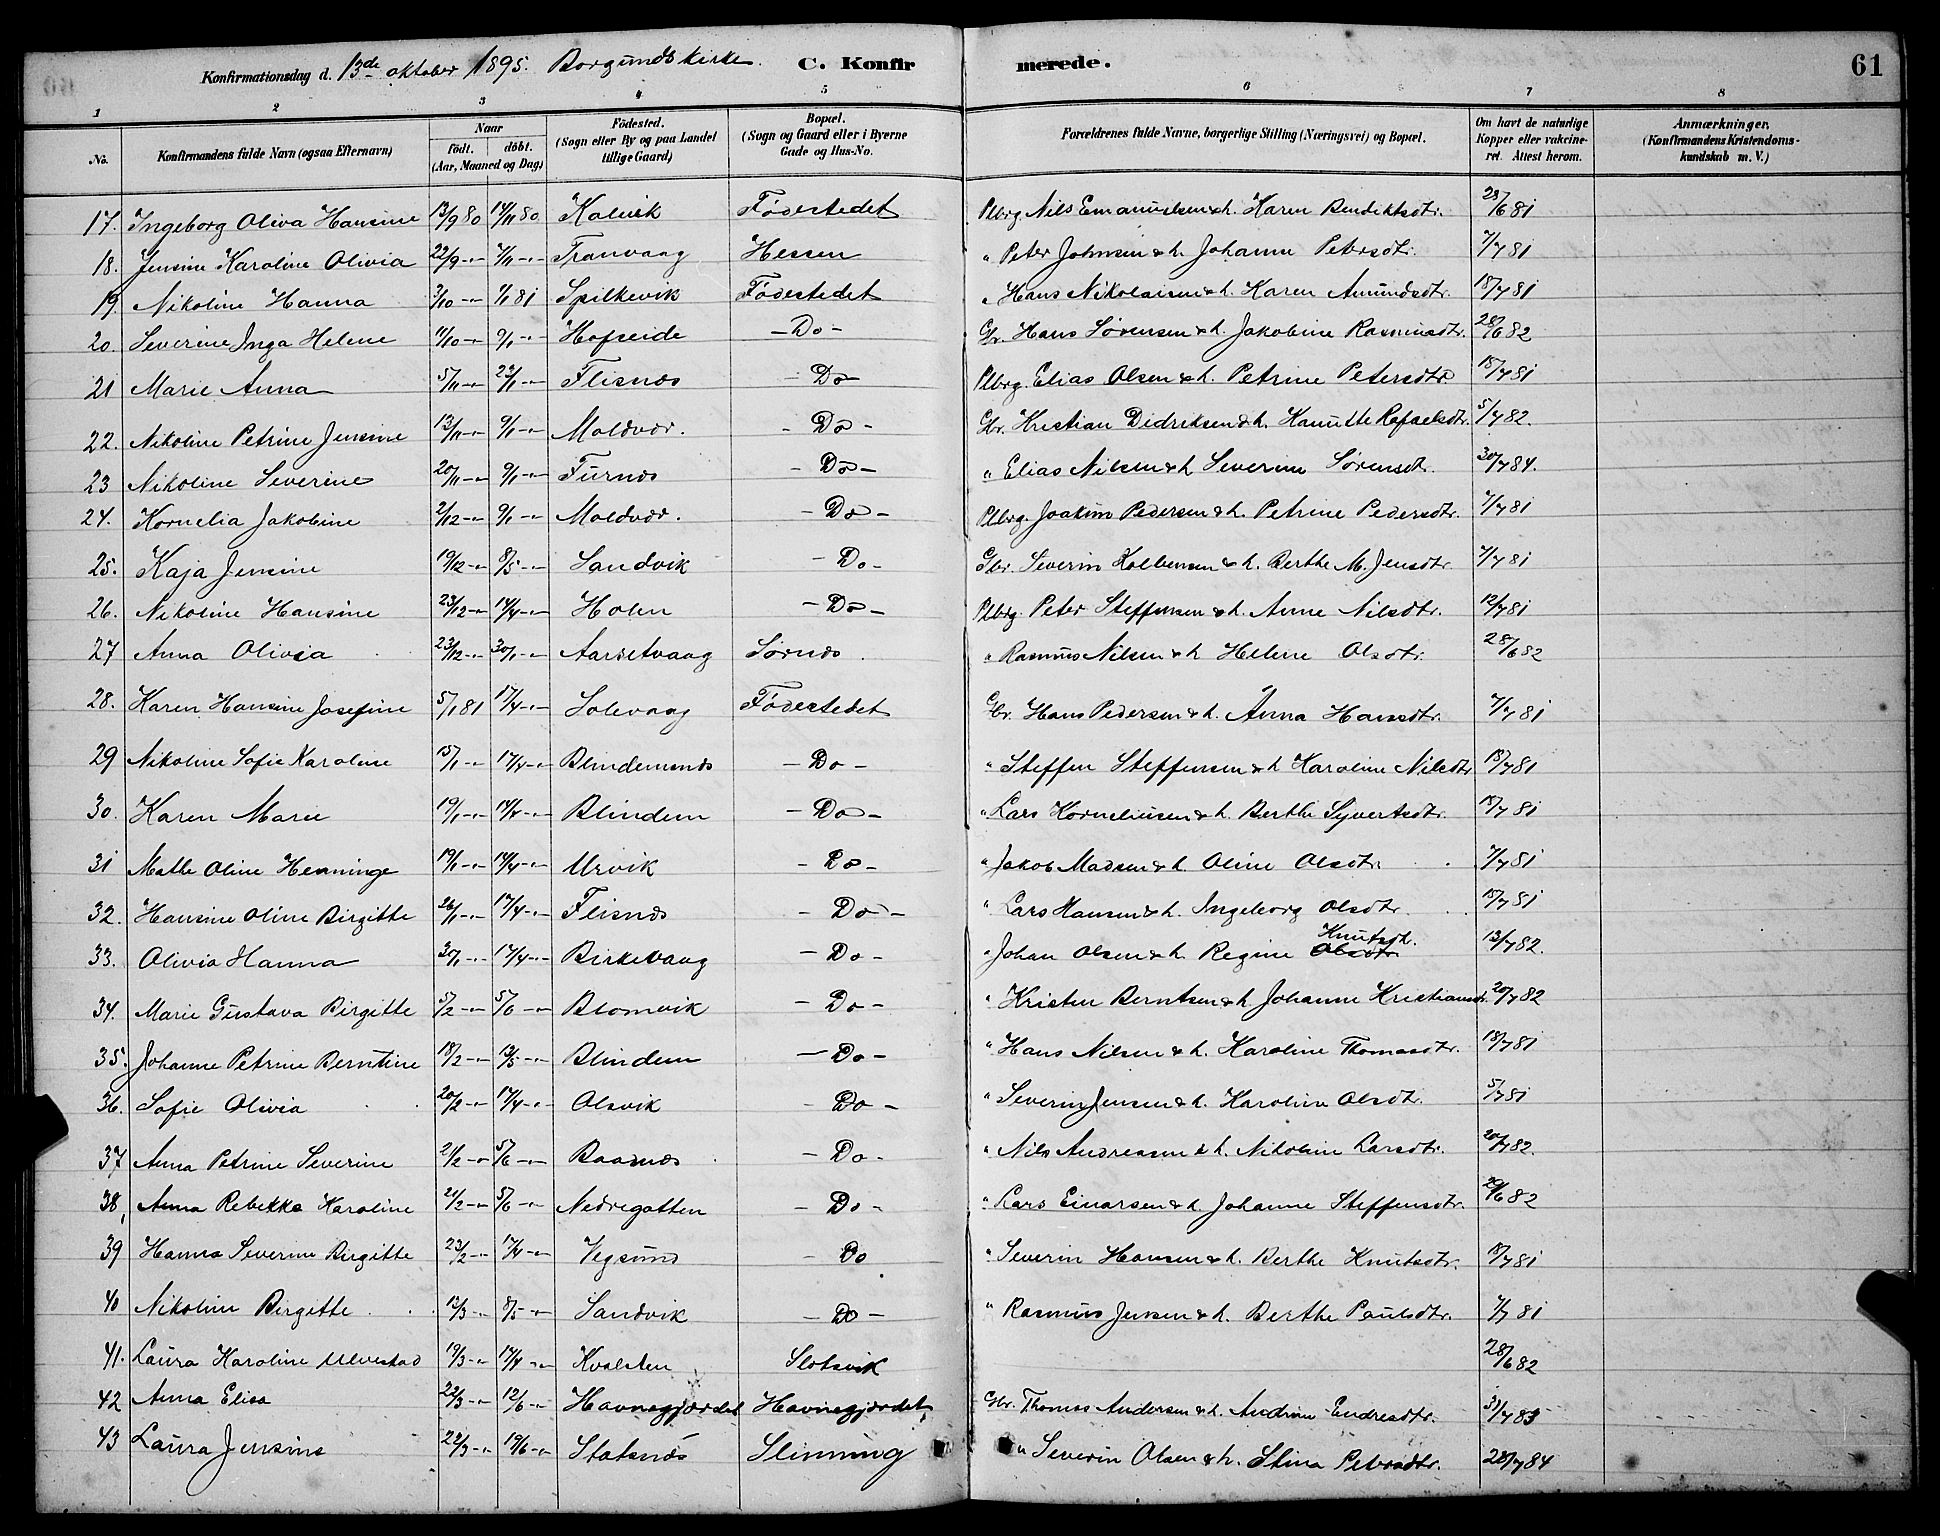 Konfirmationsdag d. 13de oktober 1895. Borgunds kirke. C. Konfir merede. 61
1 2 3 4 5 6 7 8
No. Konfirmandens fulde Navn (ogsaa Efternavn) Naar födt. döbt. (Aar, Maaned og Dag) Födested. (Sogn eller By og paa Landet tillige Gaard) Bopæl. (Sogn og Gaard eller i Byerne Gade og Hus-No. Forældrenes fulde Navne, borgerlige Stilling (Næringsvei) og Bopæl. Om havt de naturlige Kopper eller vakcineret. Attest herom. Anmærkninger. (Konfirmandens Kristendomskundskab m. V.)
17. Ingeborg Oliva Hansine 13/9 80 14/11 80 Kalvik Fødestedet Plbrg. Nils Emanuelsen & h. Karen Bendiktsdtr. 28/6 81
18. Jensine Karoline Olivia 22/9 -"- 7/11 -"- Tranvaag Hessen " Peter Johnsen & h. Johanne Petersdtr. 7/7 81
19. Nikoline Hanna 3/10 -"- 1/1 81 Spilkevik Fødestedet " Hans Nikolaisen & h. Karen Amundsdtr. 18/7 81
20. Severine Inga Helene 11/10 -"- 9/1 -"- Hofseide - Do - Gbr. Hans Sørensen & h. Jakobine Rasmusdtr. 28/6 82
21 Marie Anna 5/11 -"- 23/1 -"- Flisnæs - Do - Plbrg. Elias Olsen & h. Petrine Petersdtr 18/7 81
22. Nikoline Petrine Jensine 13/11 -"- 9/1 -"- Moldvær. - Do - Gbr. Kristian Didriksen & h. Hanutte Rafaelsdtr. 5/7 82.
23 Nikoline Severine 20/11 -"- 9/1 -"- Furnæs - Do - " Elias Nilsen & h Severine Sørensdtr. 30/7 84.
24. Kornelia Jakobine 2/12 -"- 9/1 -"- Moldvær. - Do - Plbrg. Joakim Pedersen & h. Petrine Pedersdtr. 7/7 81
25. Kaja Jensine 19/12 -"- 8/5 -"- Sandvik - Do - Gbr. Severin Kolbensen & h. Berthe M. Jensdtr. 7/7 81
26. Nikoline Hansine 23/12 -"- 14/4 -"- Holen - Do - Plbrg. Peter Steffensen & h. Anne Nilsdtr. 12/7 81
27 Anna Olivia 23/12 -"- 30/1 -"- Aarsetvaag Sørnæs. " Rasmus Nilsen & h Helene Olsdtr. 28/6 82
28. Karen Hansine Josefine 5/1 81 17/4 -"- Solevaag Fødestedet Gbr. Hans Pedersen & h. Anna Hansdtr. 7/7 81
29 Nikoline Sofie Karoline 15/1 -"- 17/4 -"- Blindemsnæs - Do - " Steffen Steffensen & h Karoline Nilsdtr 18/7 81
30. Karen Marie 19/1 -"- 14/4 -"- Blindem - Do - " Lars Korneliusen & h. Berthe Syvertsdtr. 18/7 81
31 Mathe Oline Henninge 19/1 -"- 14/4 -"- Urvik - Do - " Jakob Madsen & h. Oline Olsdtr. 7/7 81
32. Hansine Oline Birgitte 26/1 -"- 17/4 -"- Flisnæs - Do - " Lars Hansen & h. Ingeborg Olsdtr. 18/7 81
33. Olivia Hanna 30/1 -"- 17/4 -"- Birkevaag - Do - " Johan Olsen & h. Regine Knutsdtr. Olsdtr. 13/7 82.
34. Marie Gustava Birgitte 5/2 -"- 5/6 -"- Blomvik - Do - " Kristen Berntsen & h. Johanne Kristiansdtr. 20/7 82
35. Johanne Petrine Berntine 18/2 -"- 13/5 -"- Blindem - Do - " Hans Nilsen & h. Karoline Thomasdtr. 18/7 81
36. Sofie Olivia 20/2 -"- 17/4 -"- Olsvik - Do - " Severin Jensen & h. Karoline Olsdtr. 5/7 81
37 Anna Petrine Severine 21/2 -"- 5/6 -"- Baasnæs - Do - " Nils Andreasen & h. Nikoline Larsdtr. 20/7 82.
38, Anna Rebekka Karoline 21/2 -"- 5/6 -"- Nedregotten - Do - " Lars Einarsen & h. Johanne Steffensdtr. 28/6 82
39 Hanna Severine Birgitte 23/2 -"- 17/4 -"- Vegsund - Do " Severin Hansen & h. Berthe Knutsdtr. 18/7 81
40 Nikoline Birgitte 13/3 -"- 8/5 -"- Sandvik - Do - " Rasmus Jensen & h. Berthe Paulsdtr. 7/7 81
41. Laura Karoline Ulvestad 19/3 -"- 17/4 -"- Kvalsten Slotsvik 28/6 82
42 Anna Elisa 22/3 -"- 12/6 -"- Havnegjærdet Havnegjærdet, Gbr. Thomas Andersen & h. Andrine Endresdtr. 31/7 83
43 Laura Jensine 22/3 -"- 19/6 -"- Slotsnæs Slinning " Severin Olsen & h. Stina Petersdtr. 28/7 84